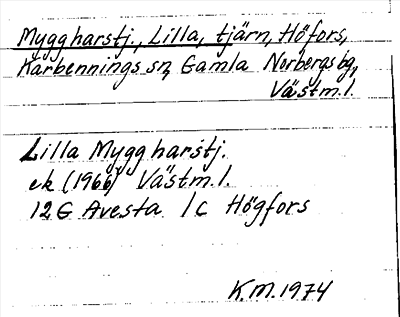 Myggharstj., Lilla, tjärn, Höfors,
Karbennings sn, Gamla Norbergs bg,
Västm.l.
Lilla Myggharstj.
ek (1966) Västm.l.
12G Avesta 1c Högfors
K.M.1974